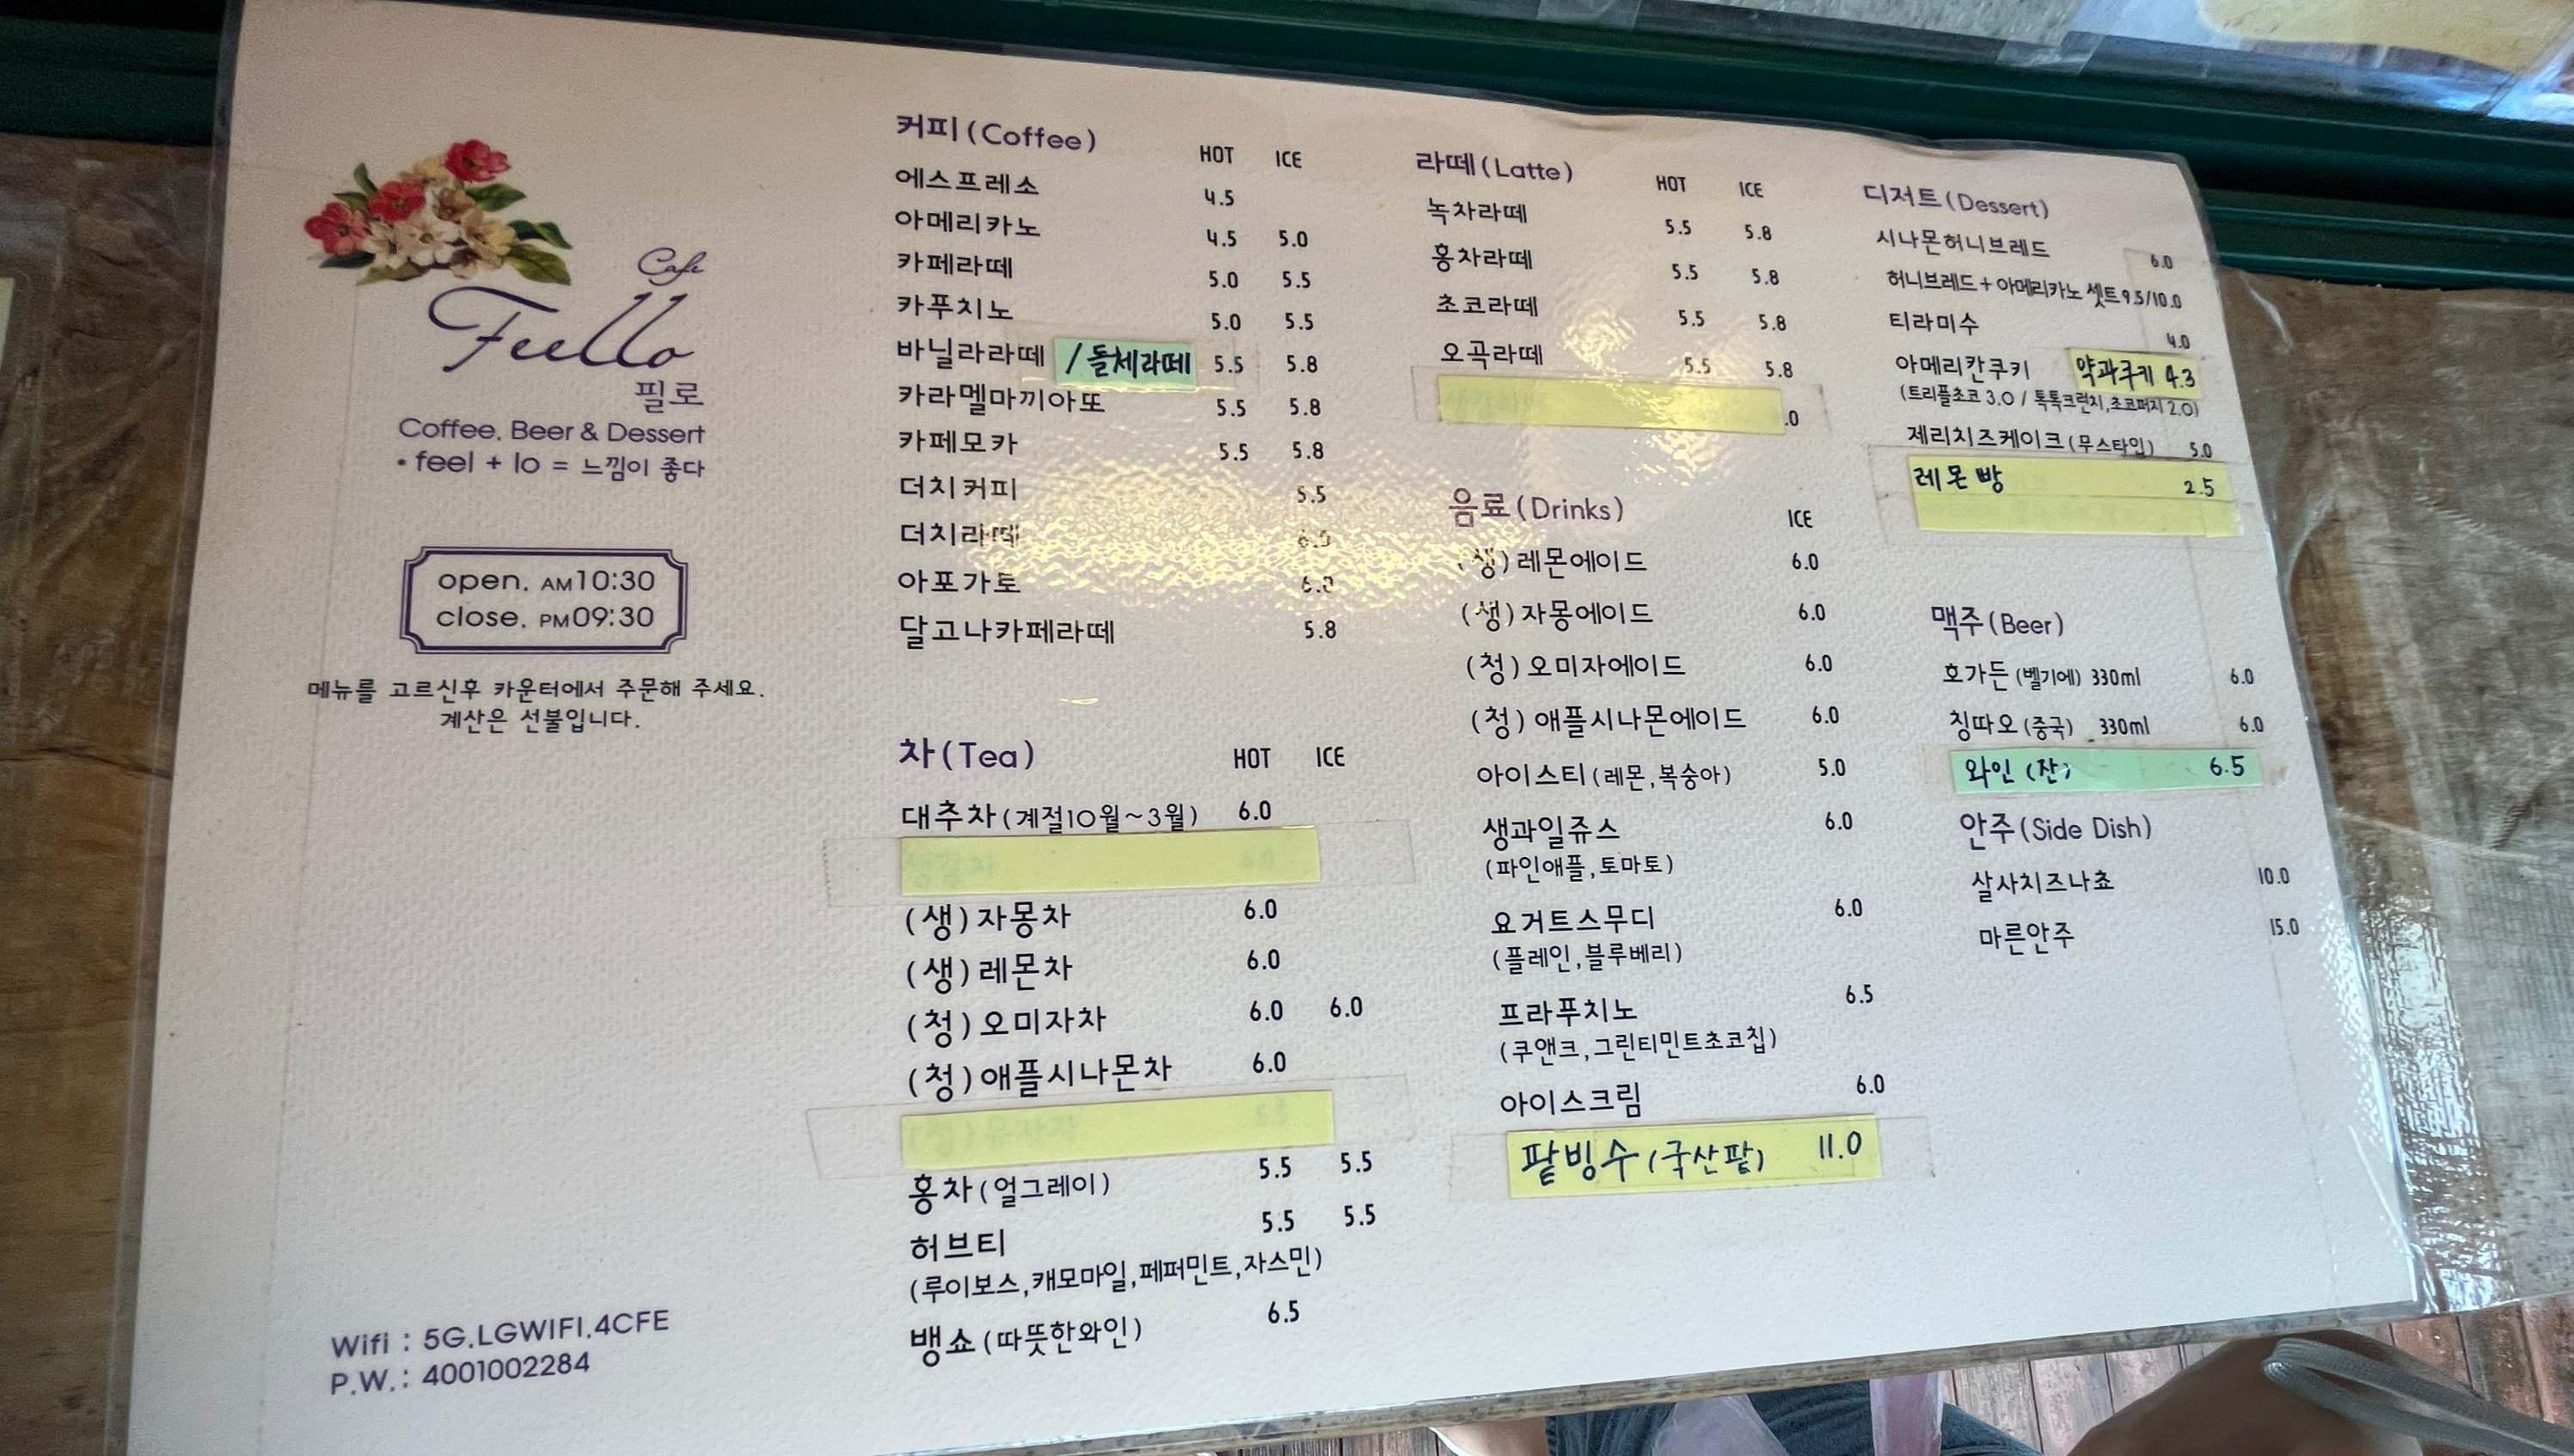 Cafe
Feello
필로
Coffee. Beer & Dessert
• feel + lo = 느낌이 좋다
open. AM10:30
close. PM09:30
메뉴를 고르신후 카운터에서 주문해 주세요.
계산은 선불입니다.
Wifi : 5G.LGWIFI.4CFE
P.W.: 4001002284
커피(Coffee) HOT ICE
에스프레소 4.5
아메리카노 4.5 5.0
카페라떼 5.0 5.5
카푸치노 5.0 5.5
바닐라라떼 /돌체라떼 5.5 5.8
카라멜마끼아또 5.5 5.8
카페모카 5.5 5.8
더치커피 5.5
더치라떼 6.0
아포가토 6.0
달고나카페라떼 5.8
차(Tea) HOT ICE
대추차(계절10월~3월) 6.0
(생)자몽차 6.0
(생)레몬차 6.0
(청)오미자차 6.0 6.0
(청)애플시나몬차 6.0
홍차(얼그레이) 5.5 5.5
허브티 5.5 5.5
(루이보스,캐모마일,페퍼민트,자스민)
뱅쇼(따뜻한와인) 6.5
라떼(Latte) HOT ICE
녹차라떼 5.5 5.8
홍차라떼 5.5 5.8
초코라떼 5.5 5.8
오곡라떼 5.5 5.8
.0
음료(Drinks) ICE
(생)레몬에이드 6.0
(생)자몽에이드 6.0
(청)오미자에이드 6.0
(청)애플시나몬에이드 6.0
아이스티(레몬,복숭아) 5.0
생과일쥬스 6.0
(파인애플,토마토)
요거트스무디 6.0
(플레인,블루베리)
프라푸치노 6.5
(쿠앤크,그린티민트초코칩)
아이스크림 6.0
팥빙수(국산팥) 11.0
디저트(Dessert)
시나몬허니브레드 6.0
허니브레드+아메리카노 셋트9.5/10.0
티라미수 4.0
아메리칸쿠키 약과쿠키 4.3
(트리플초코 3.0 / 톡톡크런치,초코퍼지 2.0)
제리치즈케이크(무스타입) 5.0
레몬빵 2.5
맥주(Beer)
호가든 (벨기에) 330ml 6.0
칭따오 (중국) 330ml 6.0
와인 (잔) 6.5
안주(Side Dish)
살사치즈나쵸 10.0
마른안주 15.0